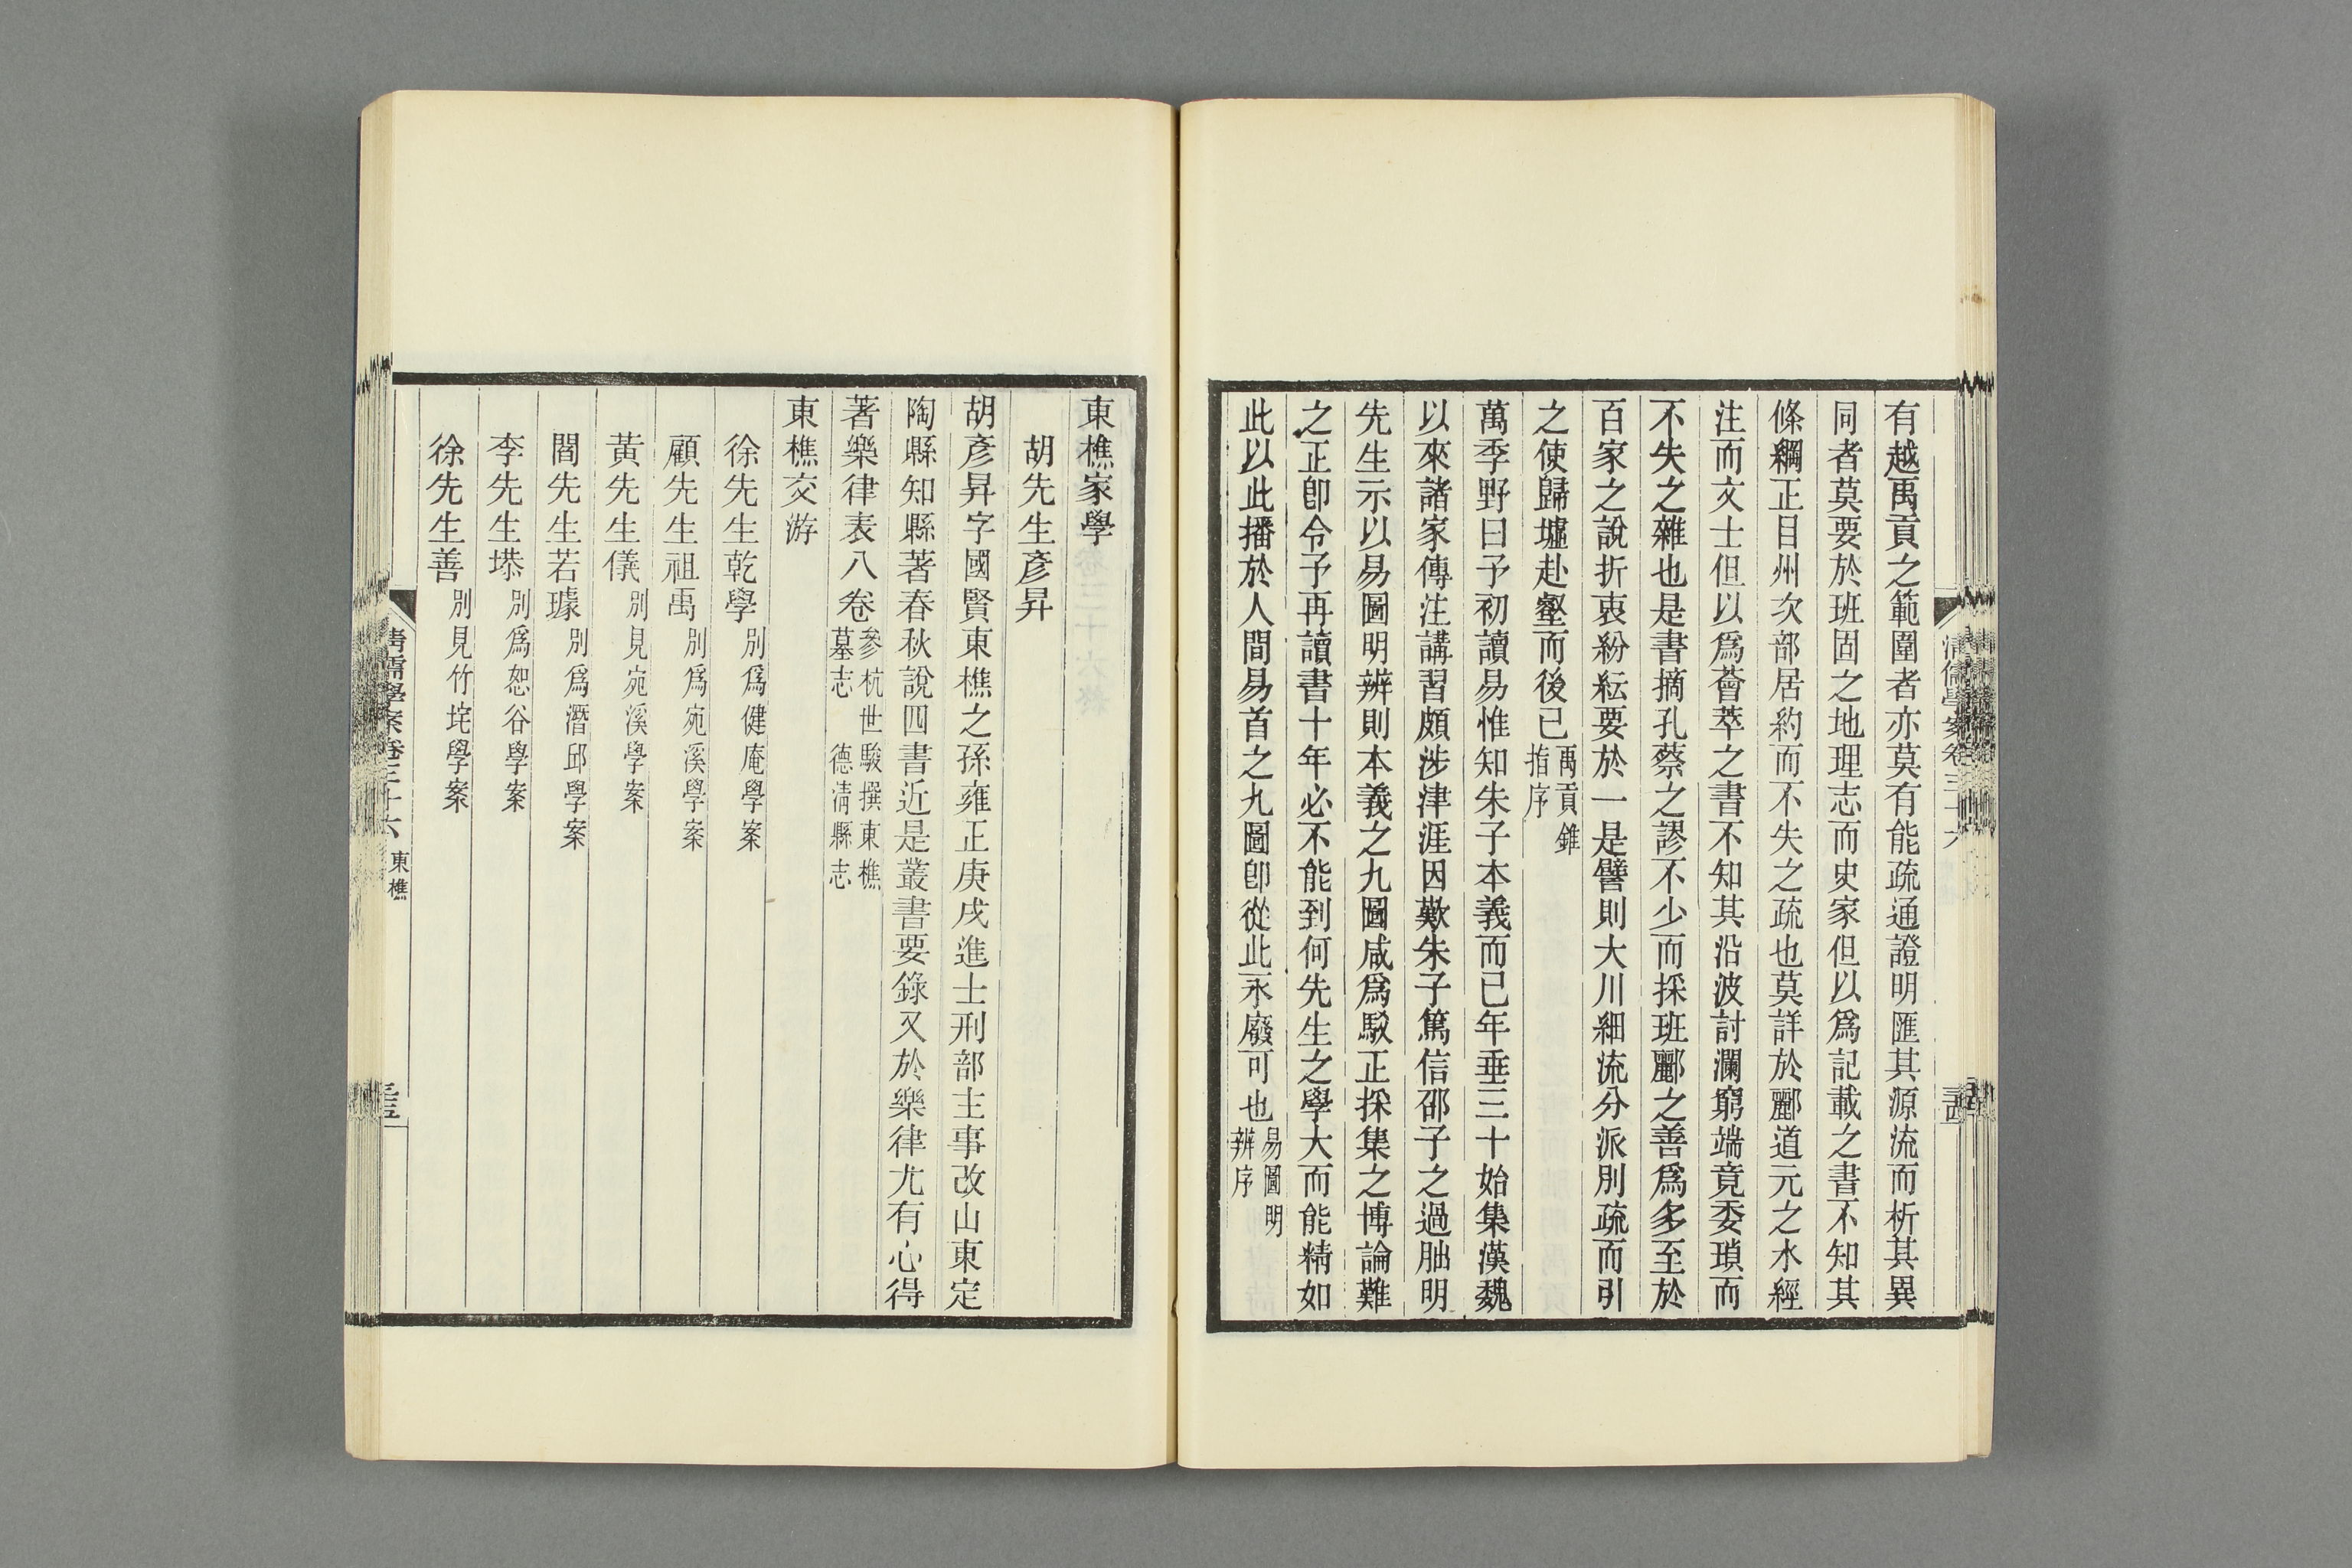 有越禹貢之範圍者亦莫有能疏通證明匯其源流而析其異
同者莫要於班固之地理志而史家但以爲記載之書不知其
條綱正目州次部居約而不失之疏也莫詳於酈道元之水經
注而文士但以爲薈萃之書不知其沿波討瀾窮端竟委瑣而
不失之雜也是書摘孔蔡之謬不少而採班酈之善爲多至於
百家之說折衷紛紜要於一是譬則大川細流分派別疏而引
之使歸墟赴壑而後已禹貢錐指序
萬季野曰予初讀易惟知朱子本義而已年垂三十始集漢魏
以來諸家傳注講習頗涉津涯因歎朱子篤信邵子之過朏明
先生示以易圖明辨則本義之九圖咸爲駁正採集之博論難
之正卽令予再讀書十年必不能到何先生之學大而能精如
此以此播於人間易首之九圖卽從此永廢可也易圖明辨序
清儒學案卷三十六
東樵家學
胡先生彥昇
胡彥昇字國賢東樵之孫雍正庚戌進士刑部主事改山東定
陶縣知縣著春秋說四書近是叢書要錄又於樂律尤有心得
著樂律表八卷參杭世駿撰東樵墓志德清縣志
東樵交游
徐先生乾學別爲健庵學案
顧先生祖禹別爲宛溪學案
黃先生儀別見宛溪學案
閻先生若璩別爲潛邱學案
李先生塨別爲恕谷學案
徐先生善別見竹垞學案
清儒學案卷三十六 東樵